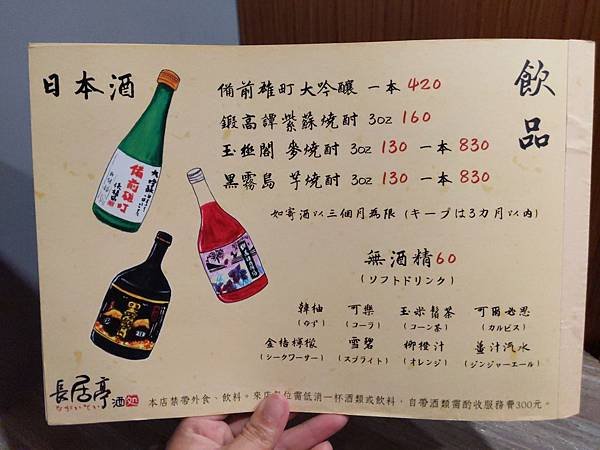 飲品
日本酒
備前雄町大吟釀 一本 420
鍛高譚紫蘇燒酎 3oz 160
玉極閣 麥燒酎 3oz 130 一本 830
黑霧島 芋燒酎 3oz 130 一本 830
如寄酒以三個月為限 (キープは3カ月以内)
無酒精60
(ソフトドリンク)
韓柚 可樂 玉米鬚茶 可爾必思
(ゆず) (コーラ) (コーン茶) (カルピス)
金桔檸檬 雪碧 柳橙汁 薑汁汽水
(シークワーサー) (スプライト) (オレンジ) (ジンジャーエール)
大吟醸
備前雄町
長居亭 酒処
ながいてい
本店禁帶外食、飲料。來店 位需低消一杯酒類或飲料，自帶酒類需酌收服務費300元。